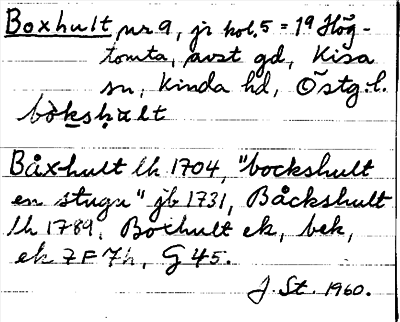 Boxhult nr 9, jr kol. 5 = 19 Hög-
tomta, avst gd, Kisa
sn, Kinda hd, Östg. l.
bòkshu̇lt
Båxhult lh 1704, "bockshult
en stugu" jb 1731, Båckshult
lh 1789. Boxhult ek, bek,
ek 7F7h, G 45.
J. St. 1960.